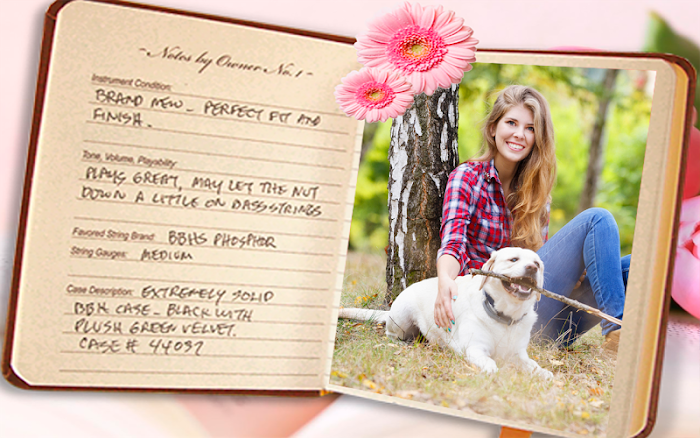 ~Notes by Owner No. 1~
Instrument Condition:
BRAND NEW - PERFECT FIT AND
FINISH.
Tone, Volume, Playability:
PLAYS GREAT, MAY LET THE NUT
DOWN A LITTLE ON BASS STRINGS
Favored String Brand: BBHS PHOSPHOR
String Gauges: MEDIUM
Case Description: EXTREMELY SOLID
BBH CASE - BLACK WITH
PLUSH GREEN VELVET.
CASE # 44037